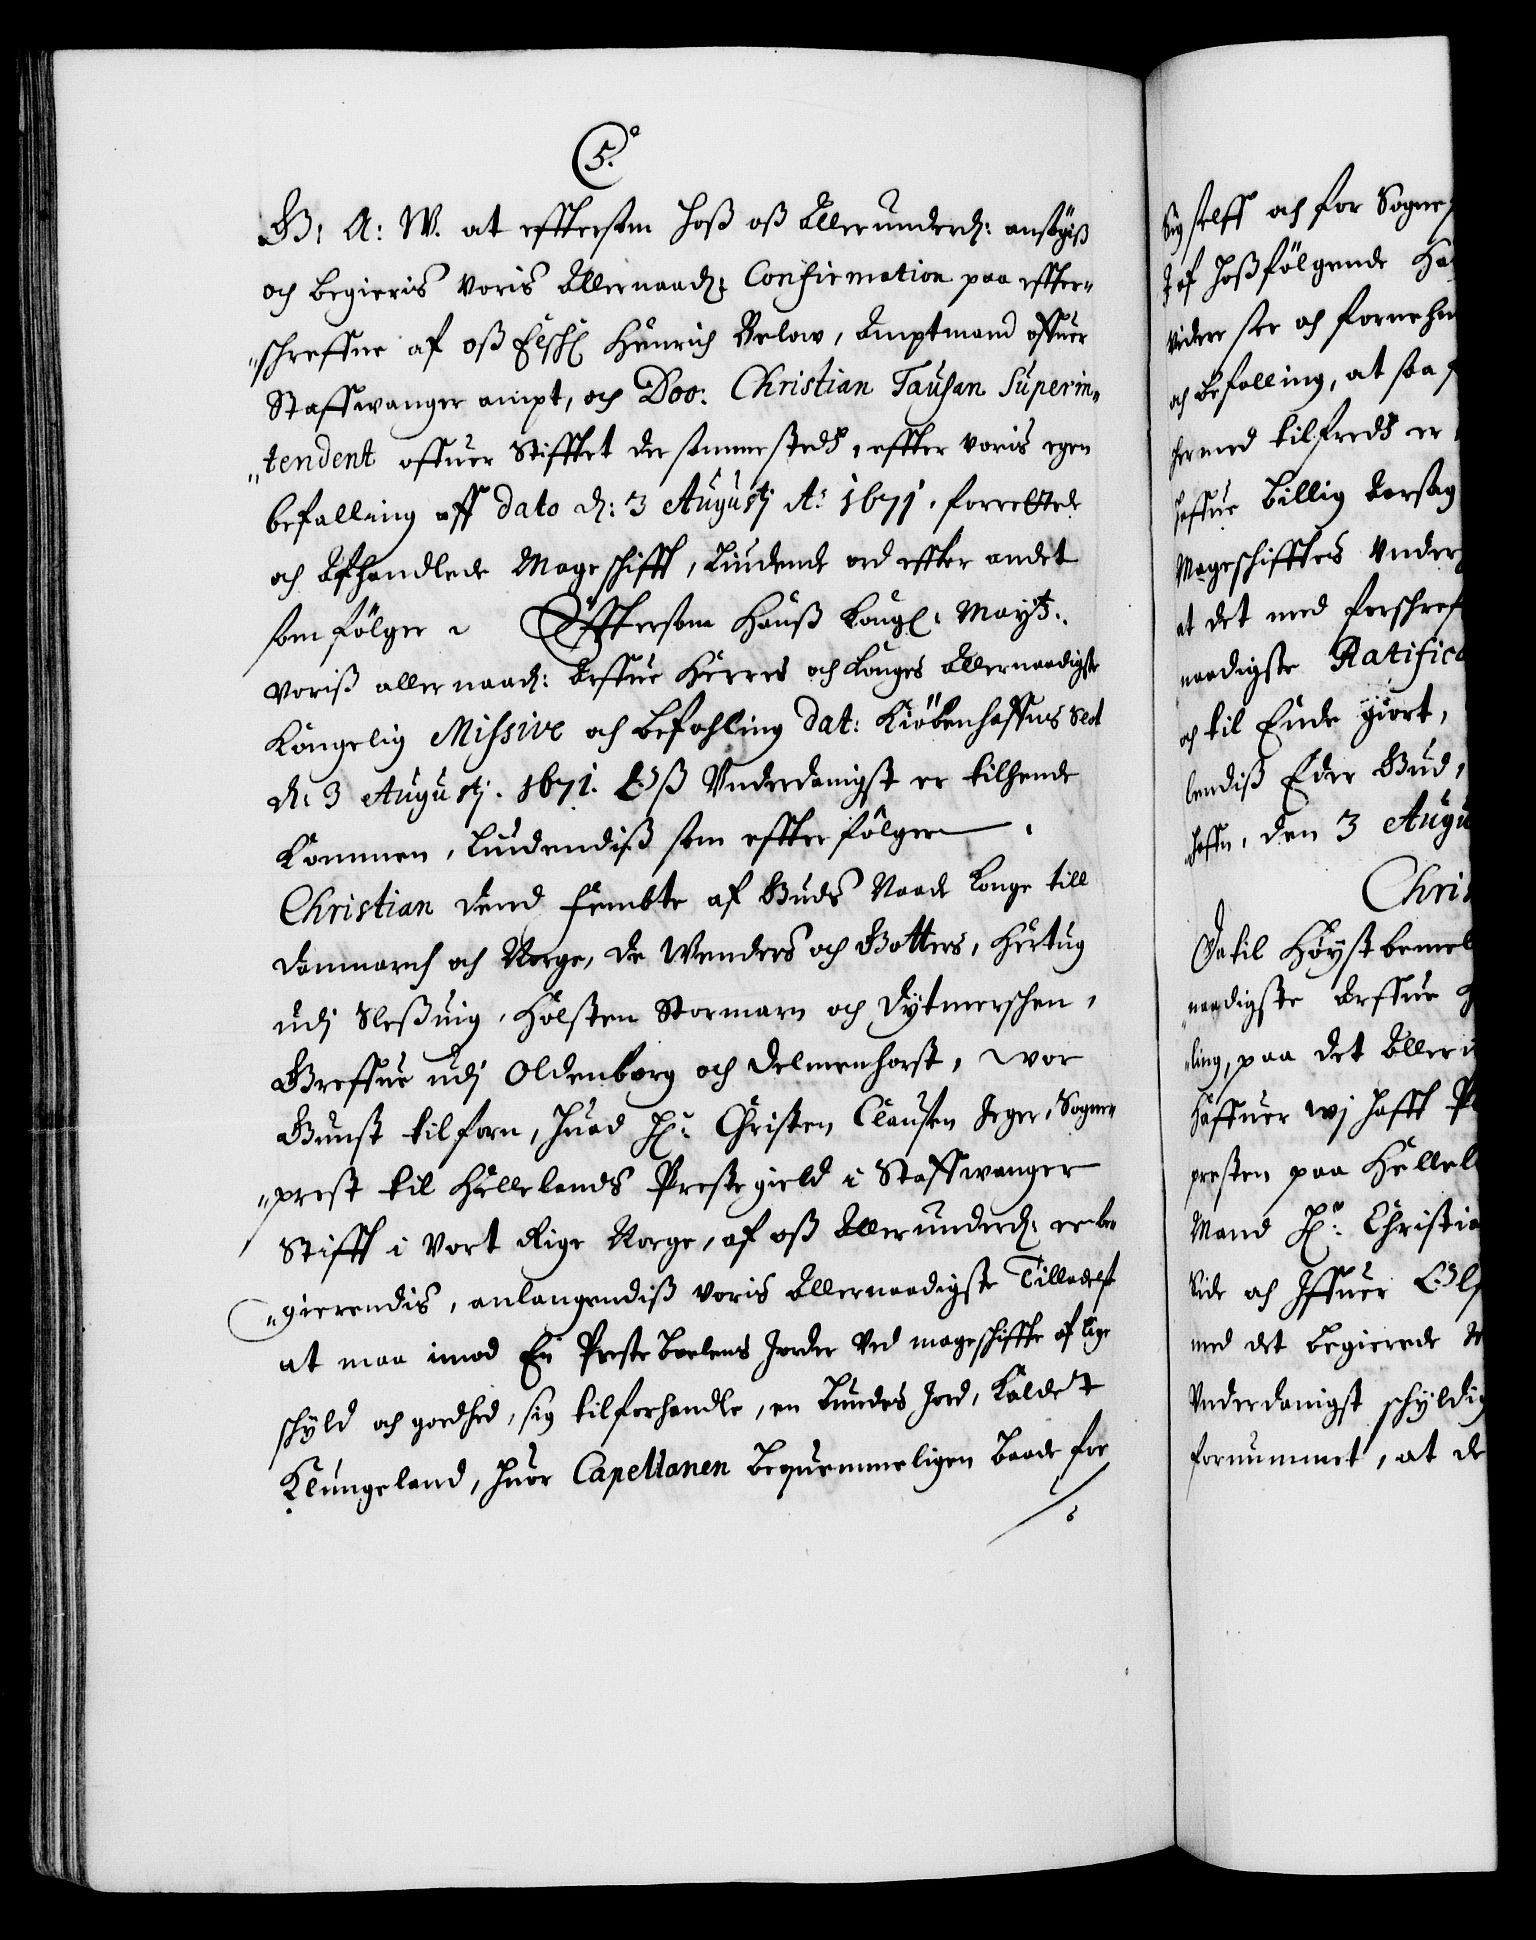 5.
G: A: W. at effterson hoß oß Allerunderd: ansøgis
och begieris voris Allernaad: Confirmation paa effter„
„schreffne af oß Elsch: Henrich Below, Amptmand offuer
Staffwanger ampt, och Doo: Christian Tausan Superin„
„tendent offuer Stifftet der sammesteds, effter voris egen
befalling aff dato d: 3 Augustj A: 1671. forrettede
och Afhandlede Mageschifft, Liudende ord effter andet
som følger Effterson Hans Kongl: Mayt:
voriß aller naad: Arffue Herres och Konges Allernaadigste
Kongelig Missive och befahling dat: Kiøbenhaffns Slot
d: 3 Augustj. 1671. Oß Underdanigst er tilhende
Kommen, Liudendiß som effterfølger
Christian dend Fembte af Guds Naade Konge till
Danmarch och Norge, de Wenders och Gotters, Hertug
udj Sleßuig, Holsten Stormarn och Dytmerschen,
Greffue udj Oldenborg och Delmenhorst, wor
Gunst tilforn, huad Hr: Christen Clausen Jeger, Sogne„
„prest til Hellelands Prestegield i Staffwanger
Stifft i Vort Rige Norge, af oß Allerunderd: er be
„gierendis, anlangendiß voris Allernaadigste Tilladelse
at maa imod En Prestebolens Jorder ved mageschiffte af lige
schyld och goedhed, sig tilforhandle, en Bundes Jord, Kaldet
Klungeland, huor Capellanen beqvemmeligen baade for
Sig selff och for Sogne
I af hoßfølgende
videre see och fornehm
och befalling, at saa
hermed tilfreds er
haffue billig Aarsag
Mageschifftes Under
at det med forschref
naadigste Ratifica
och til Ende giort,
lendiß Eder Gud,
haffn, den 3 Augu
Chris
Da til Høystbemel
naadigste Arffue
„ling, paa det Aller
Haffuer wj hafft
presten paa Hellel
Mand Hr: Christia
Side och Iffuer Ols
med det begierede
Underdanigst schyldig
fornummet, at de